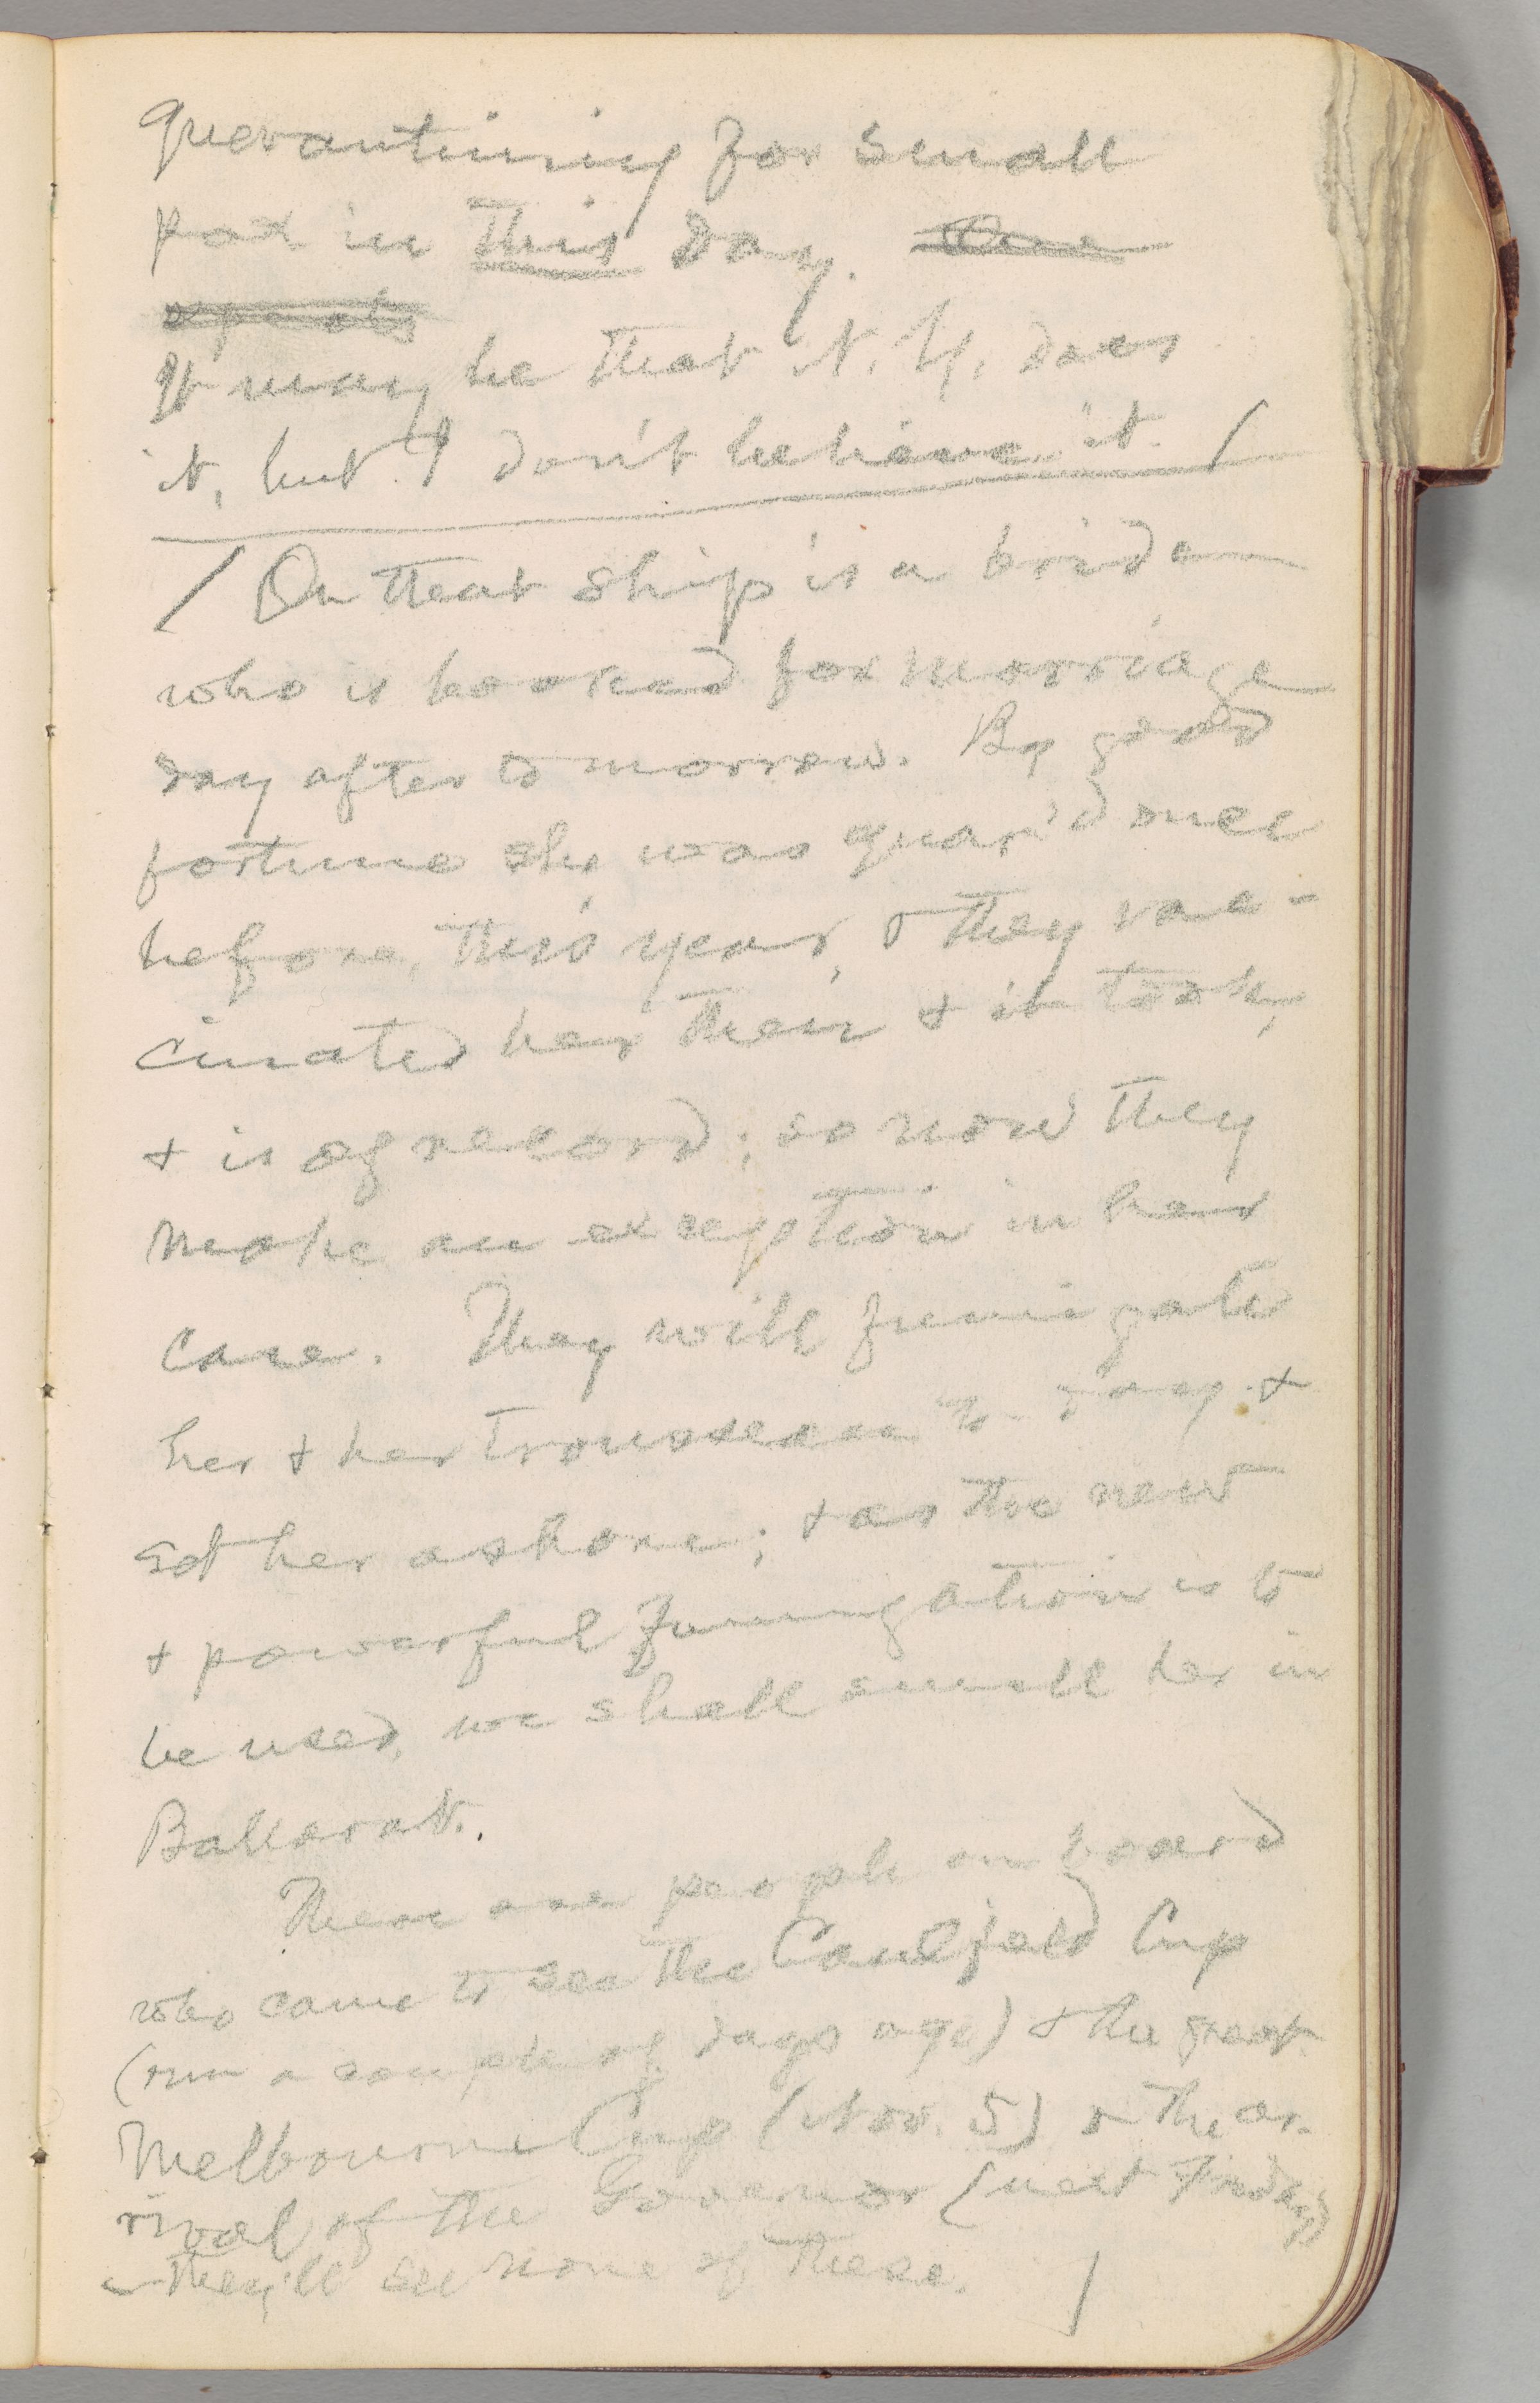 quarantining for small
pox in this day.
It may be that N. Y. does
it, but I don't believe it. /
/ On that ship is a bride
who is booked for marriage
day after to-morrow. By good
fortune she was quar'd once
before, this year, & they vac-
cinated her then & it took,
& is of record; so now they
make an exception in her
case. They will fumigate
her & her trousseau to-day &
set her ashore; & as the new
& powerful fumigation is to
be used, we shall smell her in
Ballarat.
There are people on board
who came to see the Caulfield Cup
(run a couple of days ago) & the great
Melbourne Cup (Nov. 5) & the ar-
rival of the Governor (next Friday)
— they'll see none of these. /